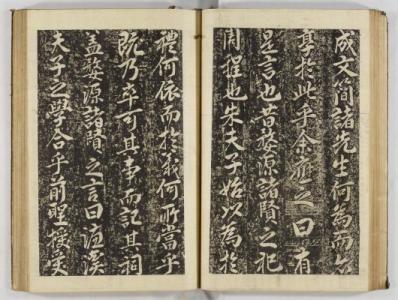 成文簡諸先生何為而合
享於此乎余應之曰有
是言也昔婺源諸賢之祀
周程也朱夫子始以為於
禮何依而於義何所當乎
既乃卒可其事而記其祠
蓋婺源諸賢之言曰濂溪
夫子之學合乎前聖授受